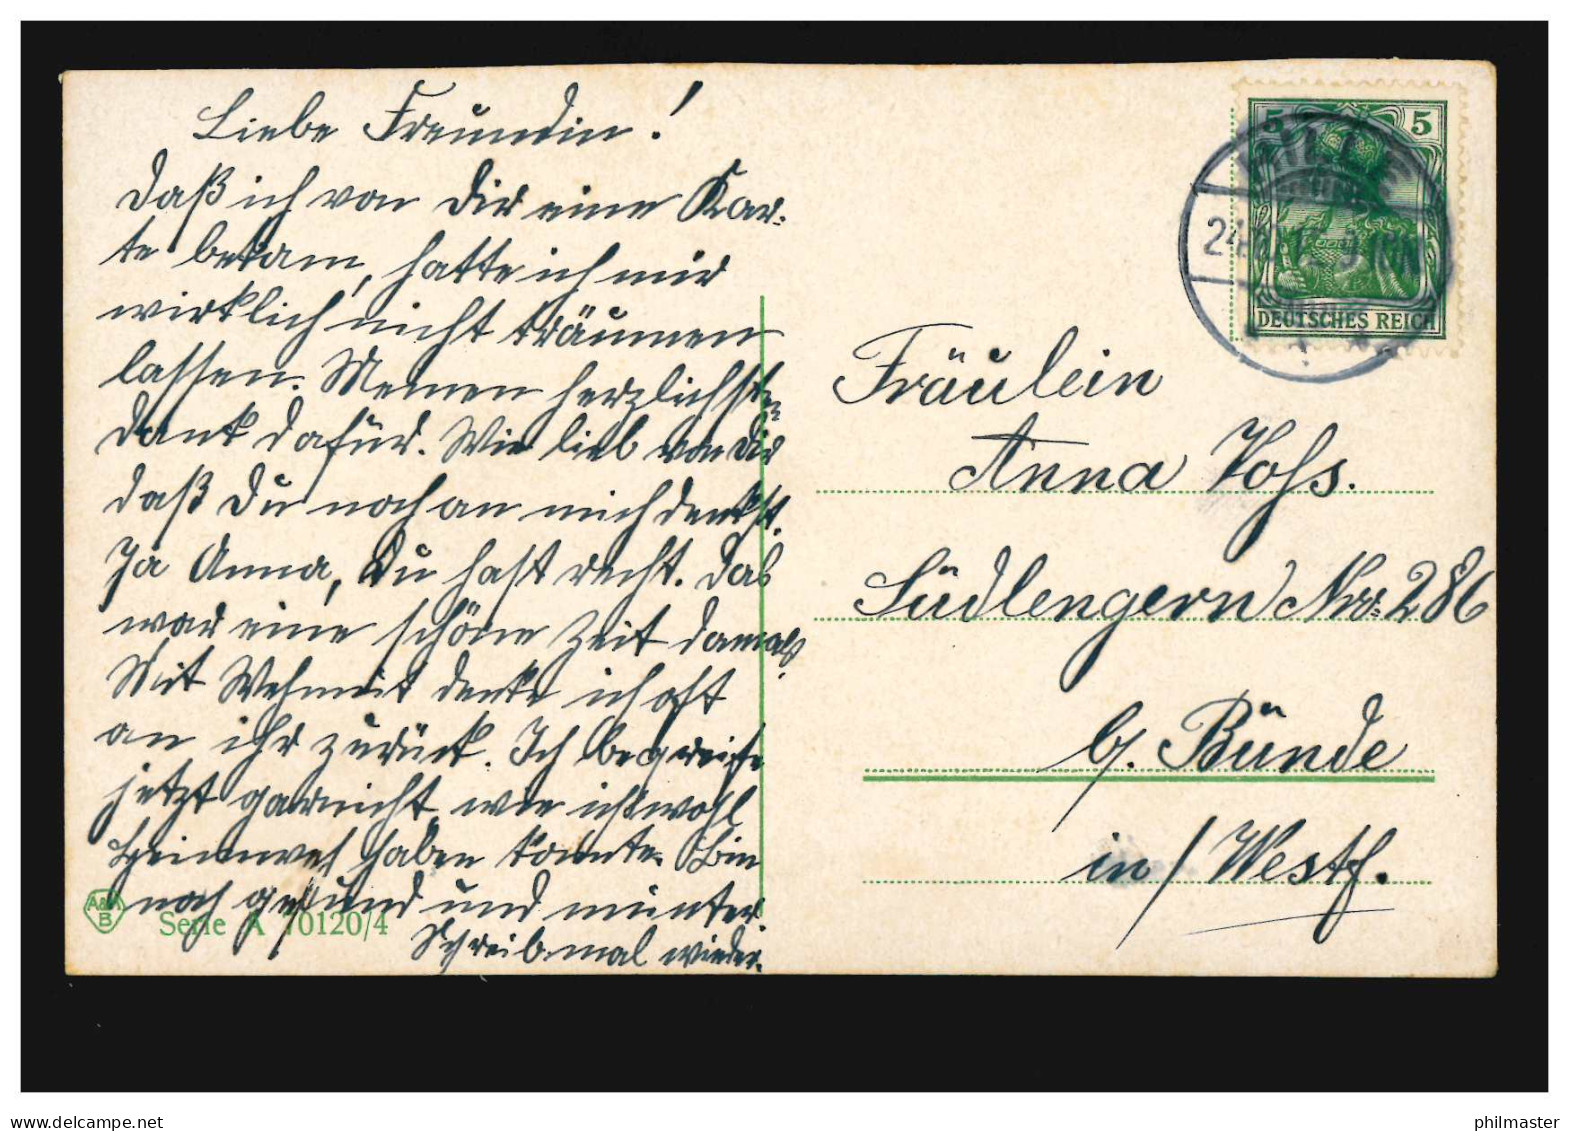 Liebe Freundin!
Daß ich von Dir eine Kar-
te bekam, hatte ich mir
wirklich nicht träumen
lassen. Meinen herzlichsten
Dank dafür. Wie lieb von Dir
daß Du noch an mich denkst.
Ja Anna, Du hast recht. Das
war eine schöne Zeit damals.
Mit Wehmut denke ich oft
an ihr zurück. Ich begreife
jetzt garnicht, wie ich wohl
Heimweh haben konnte. Bin
noch gesund und munter.
Schreib mal wieder.
A&M
B
Serie A 70120/4
5 5
DEUTSCHES REICH
HILLE
Fräulein
Anna Voss.
Südlengern Nro. 286
b/. Bünde
in/Westf.
philmaster
www.delcampe.net